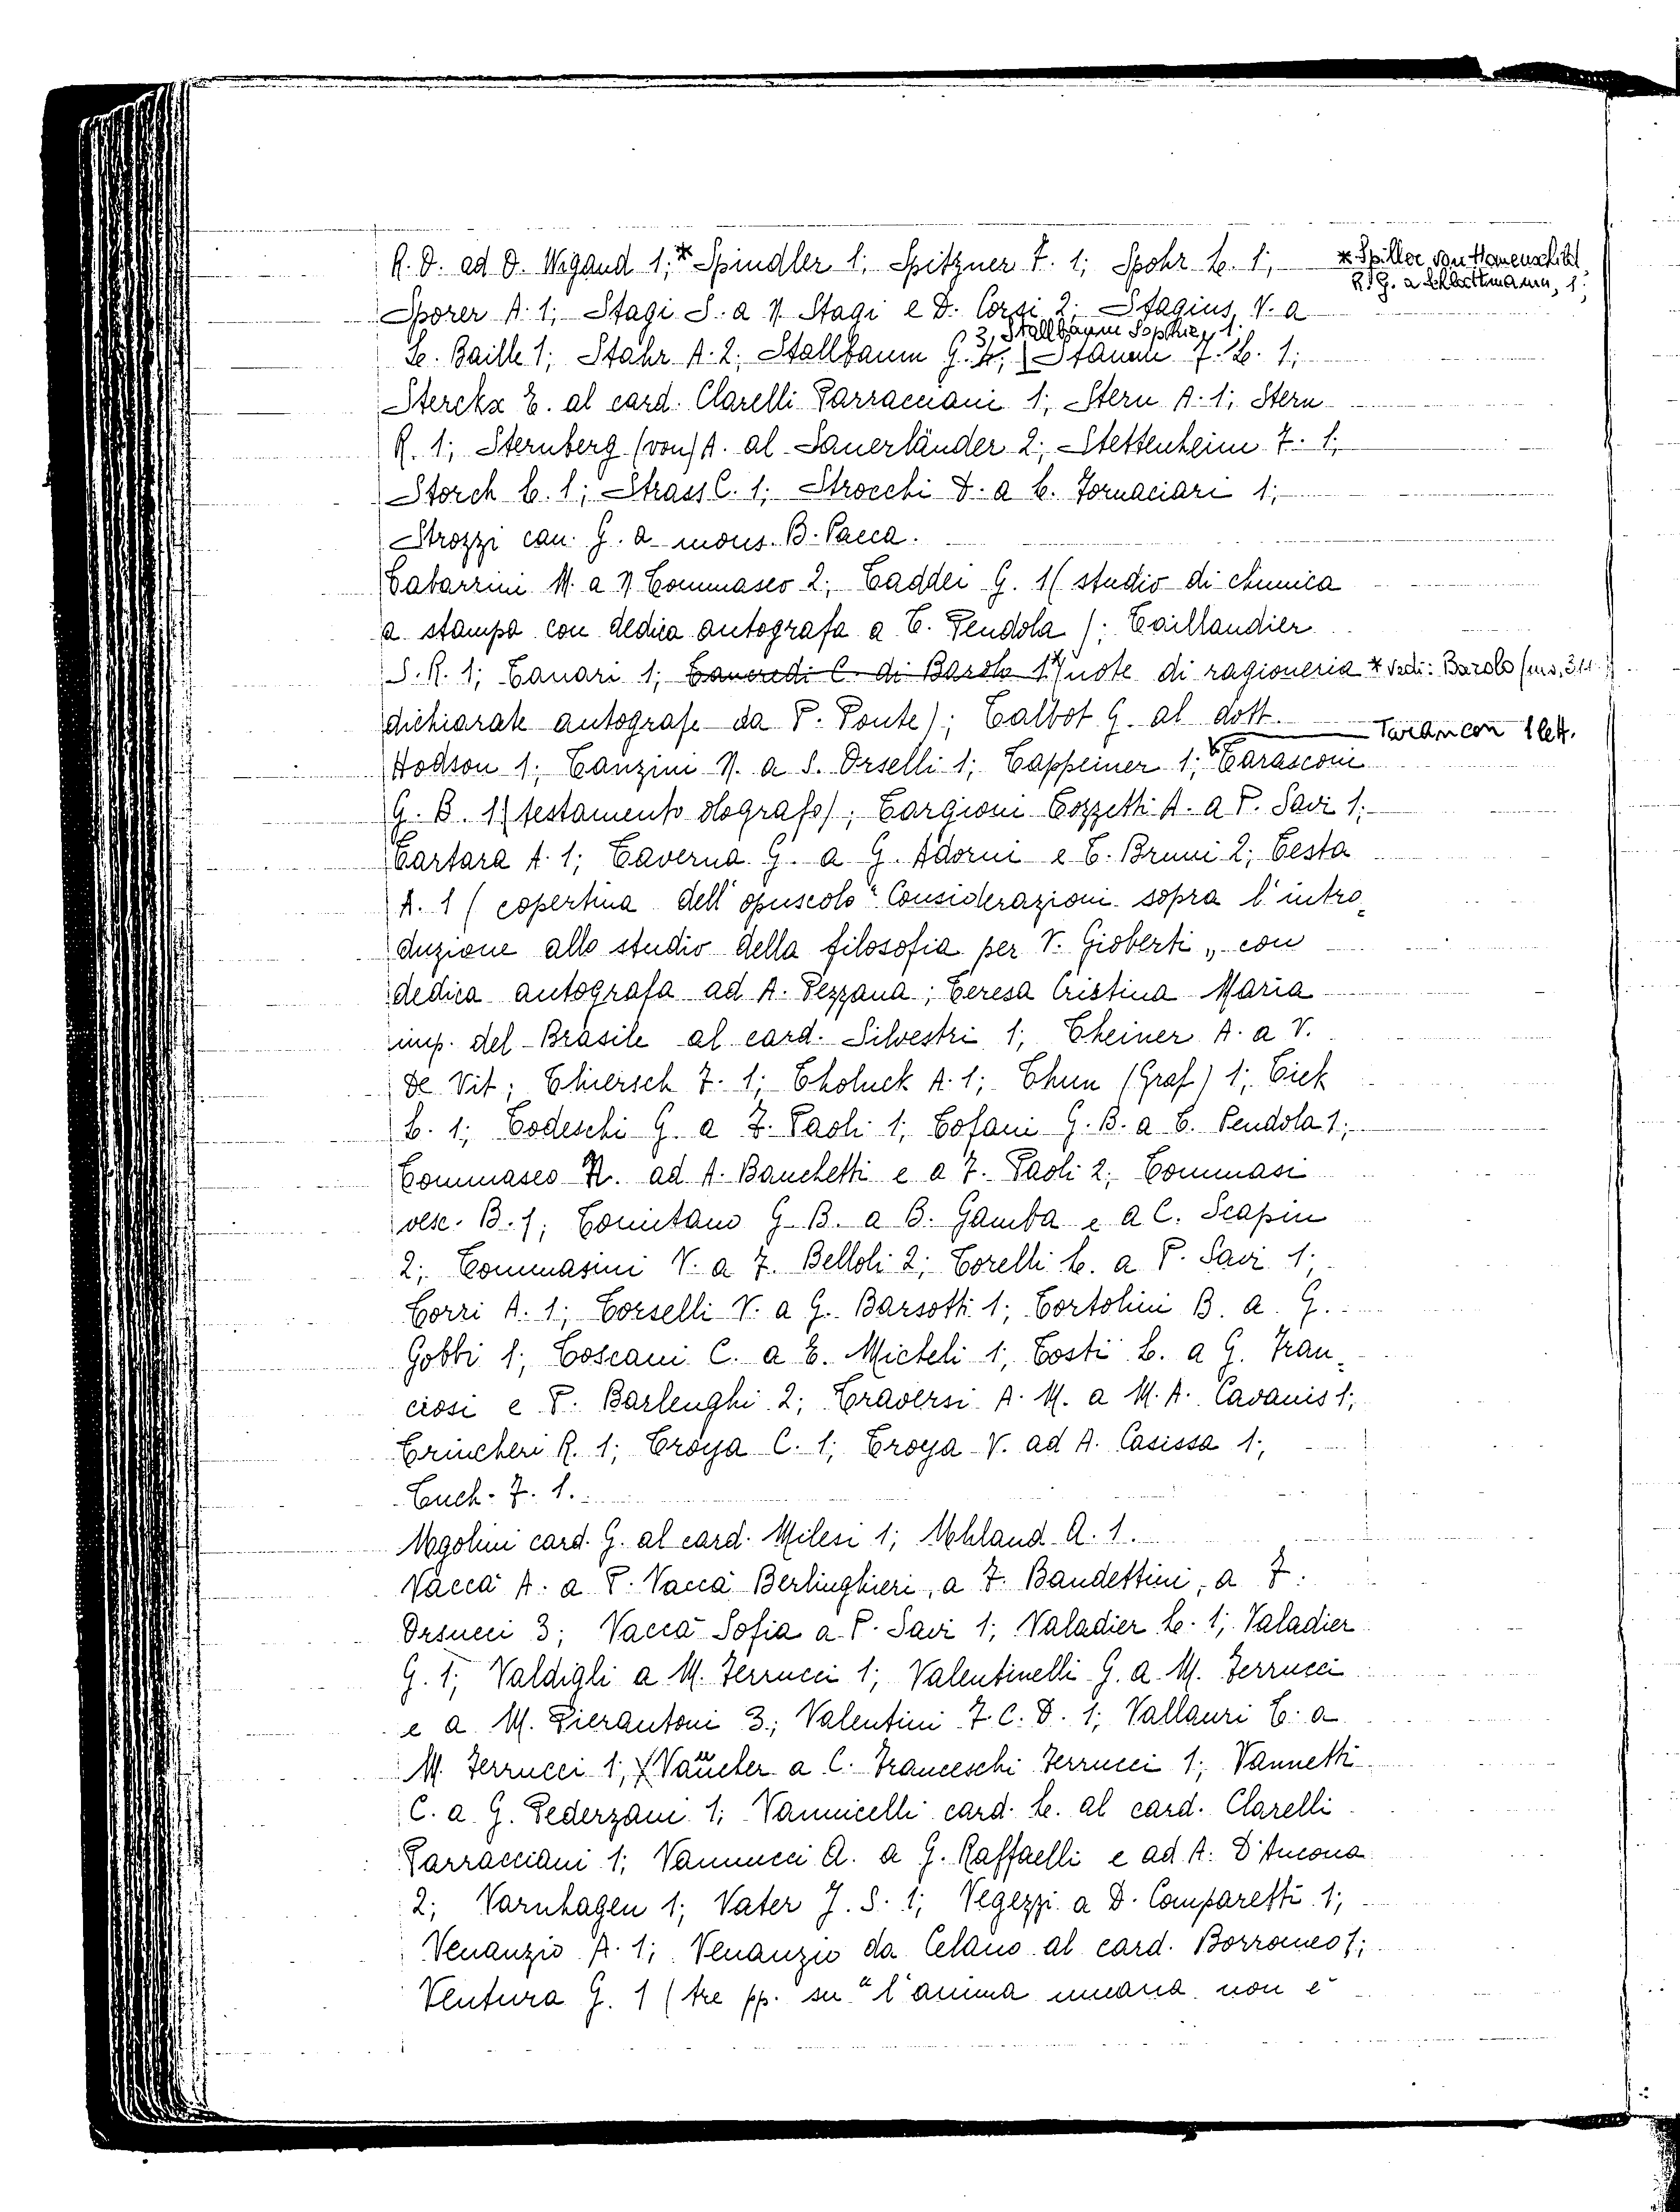 R. D. ad O. Wigand 1;* Spindler 1; Spitzner F. 1; Spohr L. 1;
* Spiller von Hauenschild
R. G. a Schlottmann, 1;
Sporer A. 1; Stagi S. a N. Stagi e D. Corsi 2; Stagius V. a
3, Stallbaum Sophie, 1.
L. Baille 1; Stahr A. 2; Stallbaum G. F. L. 1;
Sterckx E. al card. Clarelli Parracciani 1; Stern A. 1; Stern
R. 1; Sternberg (von) A. al Sauerländer 2; Stettenheim F. 1;
Storch L. 1; Strass C. 1; Strocchi D. a L. Fornaciari 1;
Strozzi can. G. a mons. B. Pacca.
Tabarrini M. a N Tommaseo 2; Taddei G. 1 (studio di chimica
a stampa con dedica autografa a T. Pendola); Taillandier
S. R. 1; Tanari 1; Tancredi C. di Barolo 1* (note di ragioneria * vedi: Barolo (ms. 311)
dichiarate autografe da P. Ponte); Talbot G. al dott.
Tarancon 1 lett.
Hodson 1; Tanzini N. a S. Orselli 1; Tappeiner 1; Tarasconi
G. B. 1 (testamento olografo); Targioni Tozzetti A. a P. Savi 1;
Tartara A. 1; Taverna G. a G. Adorni e T. Bruni 2; Testa
A. 1 (copertina dell'opuscolo "Considerazioni sopra l'intro=
duzione allo studio della filosofia per V. Gioberti" con
dedica autografa ad A. Pezzana; Teresa Cristina Maria
imp. del Brasile al card. Silvestri 1; Theiner A. a V.
De Vit; Thiersch F. 1; Tholuck A. 1; Thun (Graf) 1; Tiek
L. 1; Todeschi G. a F. Paoli 1; Tofani G. B. a T. Pendola 1;
Tommaseo N. ad A. Banchetti e a F. Paoli 2; Tommasi
vesc. B. 1; Tomitano G. B. a B. Gamba e a C. Scapin
2; Tommasini V. a F. Belloli 2; Torelli L. a P. Savi 1;
Torri A. 1; Torselli V. a G. Barsotti 1; Tortolini B. a G.
Gobbi 1; Toscani C. a E. Micheli 1; Tosti L. a G. Fran=
ciosi e P. Barlenghi 2; Traversi A. M. a M. A. Cavanis 1;
Trincheri R. 1; Troya C. 1; Troya V. ad A. Casissa 1;
Tuch. F. 1.
Ugolini card. G. al card. Milesi 1; Uhland A. 1.
Vaccà A. a P. Vaccà Berlinghieri, a F. Bandettini, a F.
Orsucci 3; Vaccà Sofia a P. Savi 1; Valadier L. 1; Valadier
G. 1; Valdigli a M. Ferrucci 1; Valentinelli G. a M. Ferrucci
e a M. Pierantoni 3; Valentini F. C. D. 1; Vallauri T. a
M. Ferrucci 1; Vaucher a C. Franceschi Ferrucci 1; Vannetti
C. a G. Pederzani 1; Vannicelli card. L. al card. Clarelli
Parracciani 1; Vannucci A. a G. Raffaelli e ad A. D'Ancona
2; Varnhagen 1; Vater J. S. 1; Vegezzi a D. Comparetti 1;
Venanzio A. 1; Venanzio da Celano al card. Borromeo 1;
Ventura G. 1 (tre pp. su "l'anima umana non è